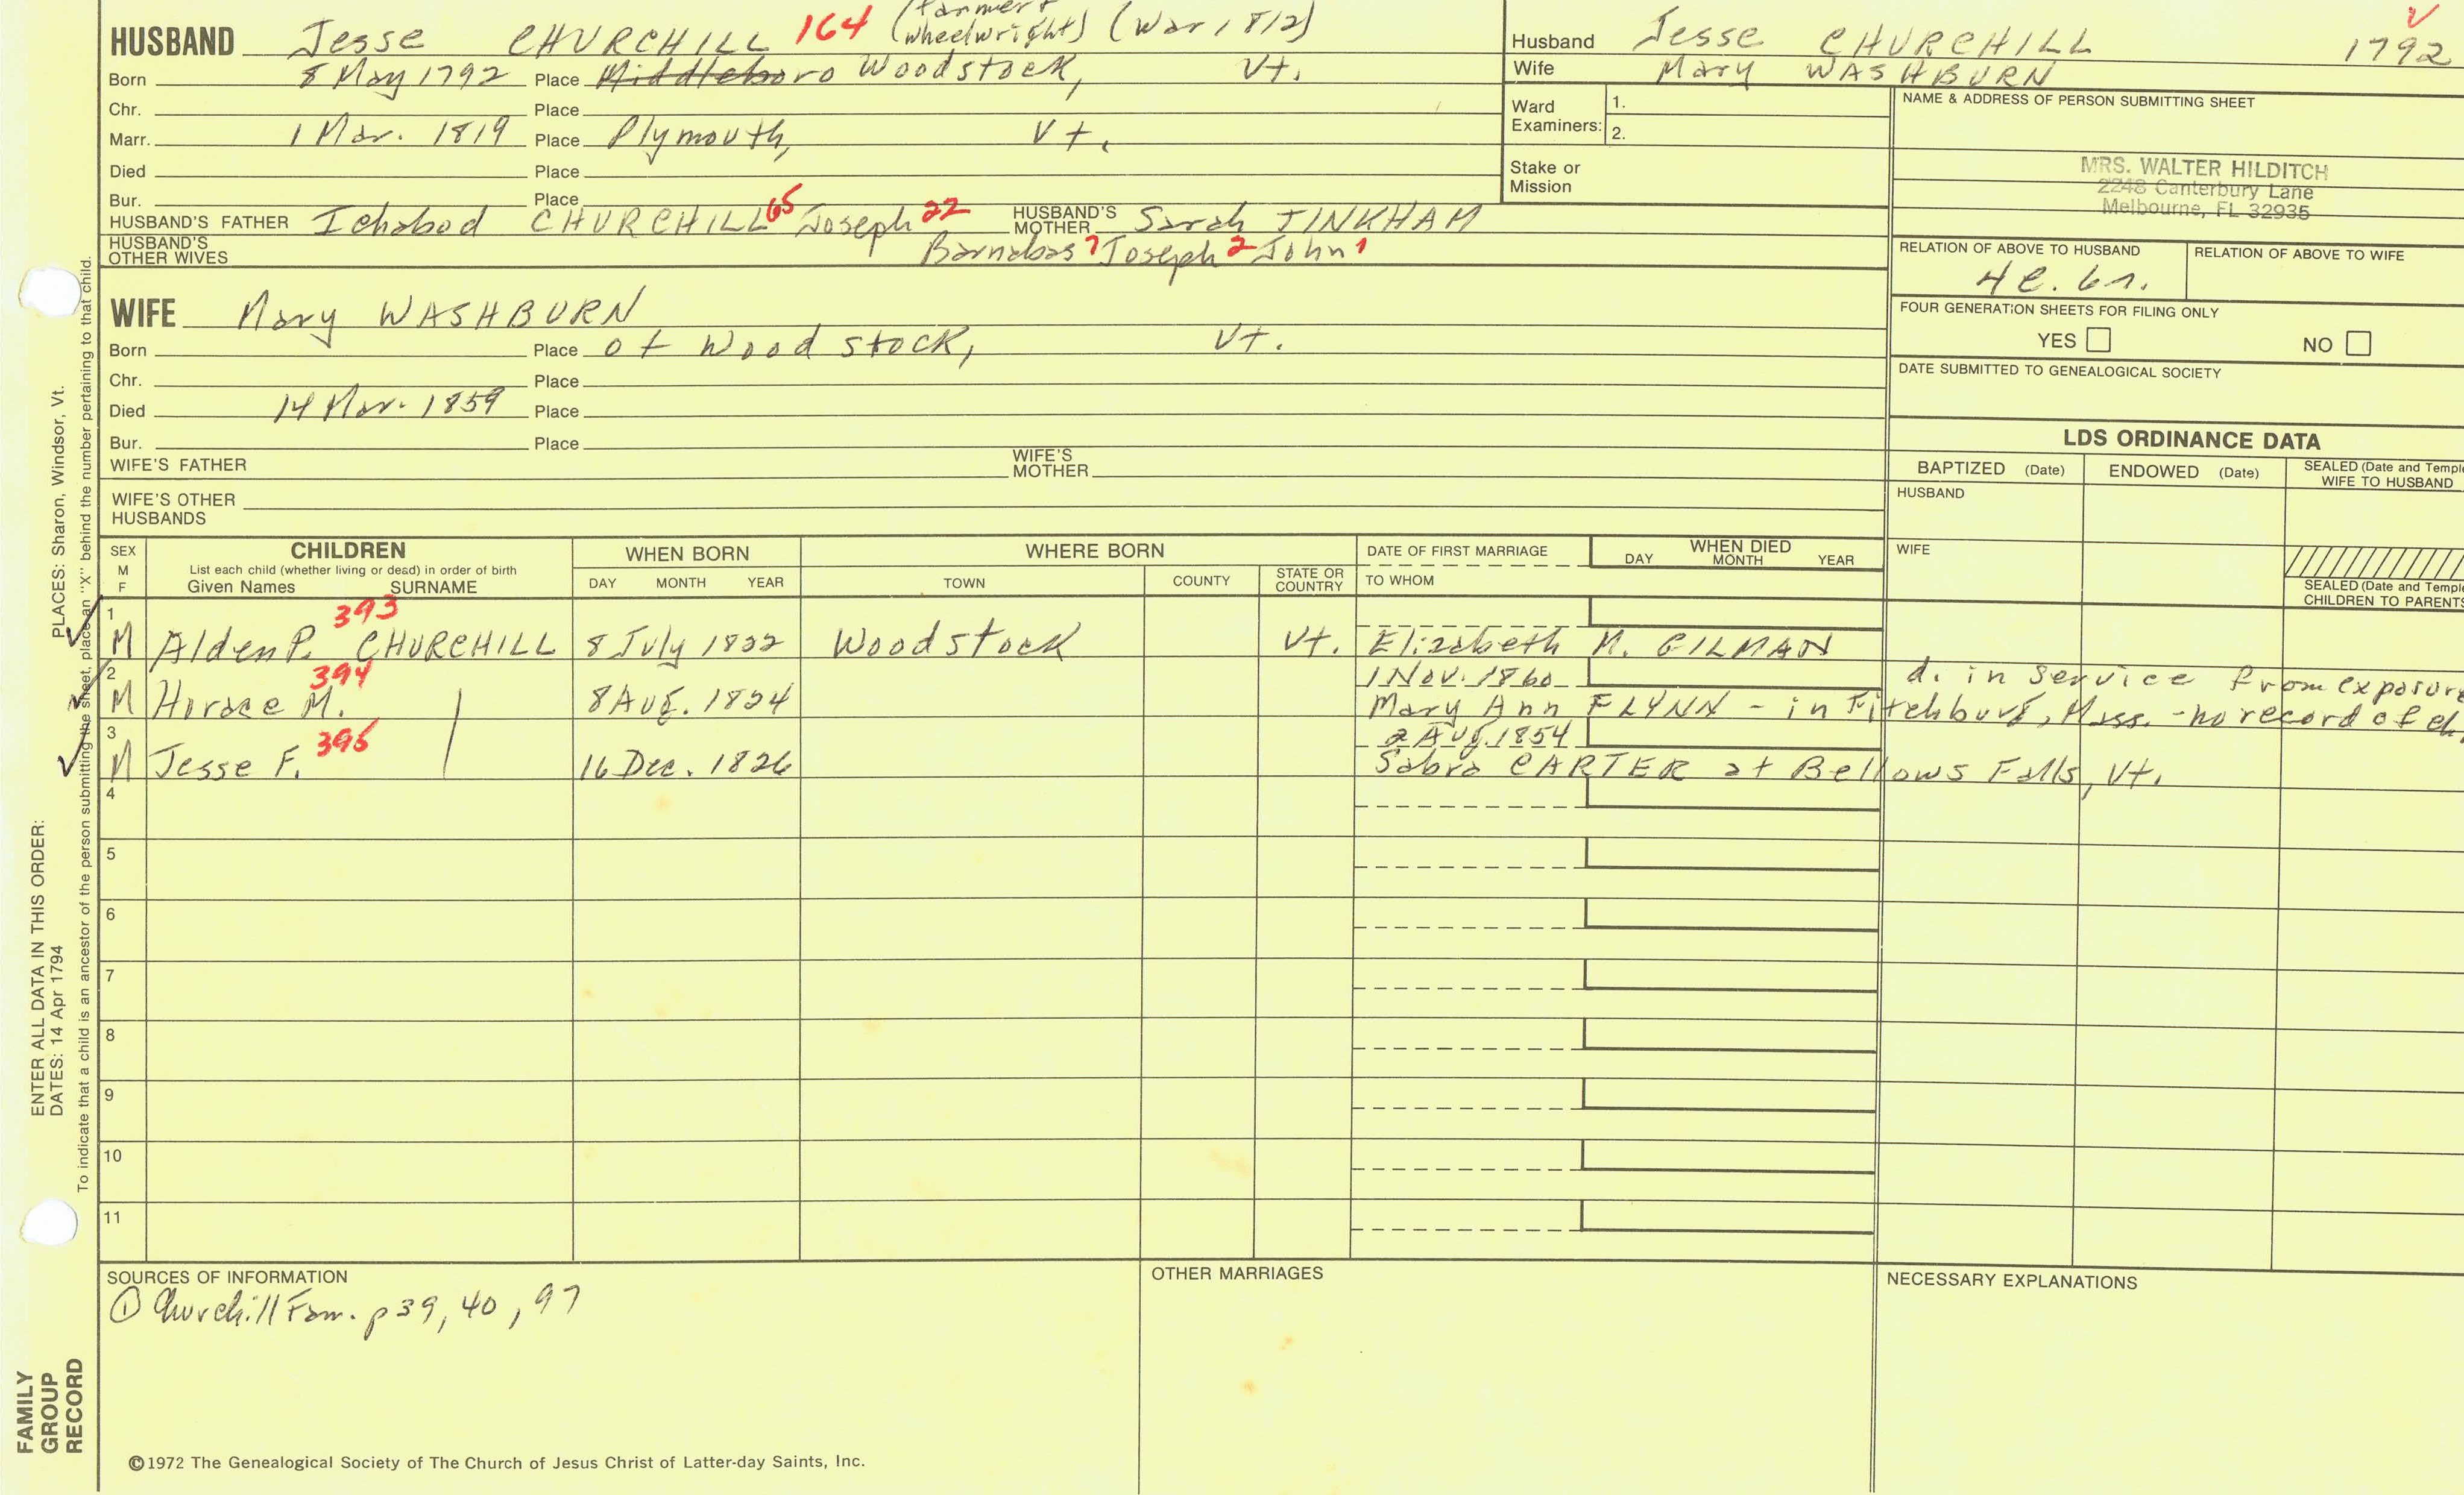 HUSBAND Jesse CHURCHILL 164 (farmer + wheelwright) (War 1812)
Born 8 May 1792 Place Middleboro Woodstock, Vt.
Chr. Place
Marr. 1 Mar. 1819 Place Plymouth, Vt.
Died Place
Bur. Place
HUSBAND'S FATHER Ichabod CHURCHILL 65 Joseph 22 HUSBAND'S MOTHER Sarah TINKHAM
HUSBAND'S OTHER WIVES Barnabas 7 Joseph 2 John 1
WIFE Mary WASHBURN
Born Place of Woodstock, Vt.
Chr. Place
Died 14 Mar. 1859 Place
Bur. Place
WIFE'S FATHER WIFE'S MOTHER
WIFE'S OTHER HUSBANDS
Husband Jesse CHURCHILL 1792
Wife Mary WASHBURN
Ward Examiners: 1.
2.
Stake or Mission
NAME & ADDRESS OF PERSON SUBMITTING SHEET
MRS. WALTER HILDITCH
2248 Canterbury Lane
Melbourne, FL 32935
RELATION OF ABOVE TO HUSBAND RELATION OF ABOVE TO WIFE
4 c. 6r.
FOUR GENERATION SHEETS FOR FILING ONLY
YES NO
DATE SUBMITTED TO GENEALOGICAL SOCIETY
LDS ORDINANCE DATA
BAPTIZED (Date) ENDOWED (Date) SEALED (Date and Temple WIFE TO HUSBAND
HUSBAND
WIFE
SEALED (Date and Temple CHILDREN TO PARENTS
SEX M F
CHILDREN
List each child (whether living or dead) in order of birth
Given Names SURNAME
WHEN BORN
DAY MONTH YEAR
WHERE BORN
TOWN COUNTY STATE OR COUNTRY
DATE OF FIRST MARRIAGE
TO WHOM
WHEN DIED
DAY MONTH YEAR
1 393
M Alden P. CHURCHILL 8 July 1822 Woodstock Vt. Elizabeth M. GILMAN
2 394 1 Nov. 1860 d. in service from exposure
M Horace M. 8 Aug. 1824 Mary Ann FLYNN - in Fitchburg, Mass. - no record of ch.
3 395 2 Aug 1854
M Jesse F. 16 Dec. 1826 Sabra CARTER at Bellows Falls, Vt.
4
5
6
7
8
9
10
11
SOURCES OF INFORMATION
① Churchill Fam. p 39, 40, 97
OTHER MARRIAGES
NECESSARY EXPLANATIONS
©1972 The Genealogical Society of The Church of Jesus Christ of Latter-day Saints, Inc.
FAMILY
GROUP
RECORD
ENTER ALL DATA IN THIS ORDER:
DATES: 14 Apr 1794 PLACES: Sharon, Windsor, Vt.
To indicate that a child is an ancestor of the person submitting the sheet, place an "X" behind the number pertaining to that child.